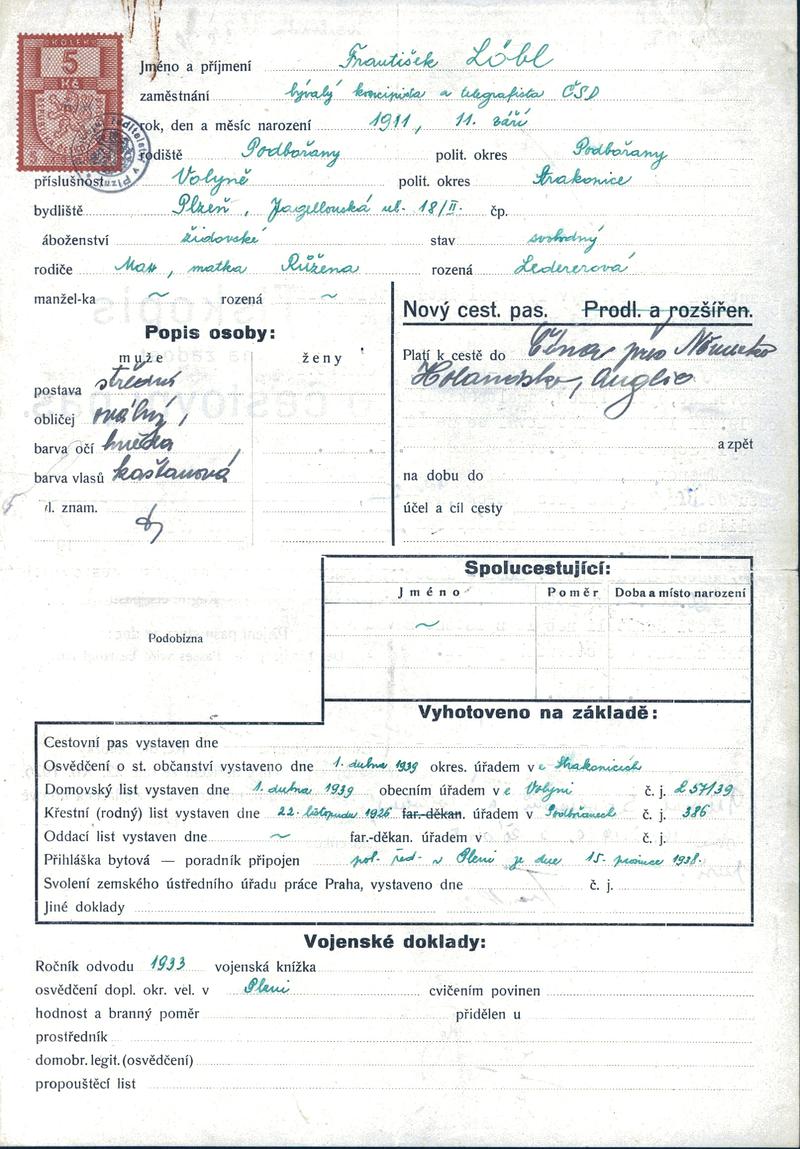 KOLEK
5
Kč
Jméno a příjmení František Löbl
zaměstnání bývalý koncipista a telegrafista ČSD
rok, den a měsíc narození 1911, 11. září
rodiště Podbořany polit. okres Podbořany
příslušnost Volyně polit. okres Strakonice
bydliště Plzeň, Jagellonská ul. 18/II. čp.
áboženství židovské stav svobodný
rodiče Max, matka Růžena rozená Ledererová
manžel-ka ~ rozená ~
Nový cest. pas. Prodl. a rozšířen.
Popis osoby:
muže ženy
Platí k cestě do Čína přes Německo
Holandsko, Anglie
postava střední
obličej oválný,
barva očí hnědá
barva vlasů kaštanová
vl. znam.
a zpět
na dobu do
účel a cíl cesty
Spolucestující:
Jméno Poměr Doba a místo narození
~
Podobizna
Vyhotoveno na základě:
Cestovní pas vystaven dne
Osvědčení o st. občanství vystaveno dne 1. dubna 1939 okres. úřadem v e Strakonicích
Domovský list vystaven dne 1. dubna 1939 obecním úřadem v e Volyni č. j. 257/39
Křestní (rodný) list vystaven dne 22. listopadu 1926 far.-děkan. úřadem v Podbořanech č. j. 386
Oddací list vystaven dne ~ far.-děkan. úřadem v č. j.
Přihláška bytová — poradník připojen pol. řed. v Plzni ze dne 15. prosince 1938.
Svolení zemského ústředního úřadu práce Praha, vystaveno dne č. j.
Jiné doklady
Vojenské doklady:
Ročník odvodu 1933 vojenská knížka
osvědčení dopl. okr. vel. v Plzni cvičením povinen
hodnost a branný poměr přidělen u
prostředník
domobr. legit. (osvědčení)
propouštěcí list